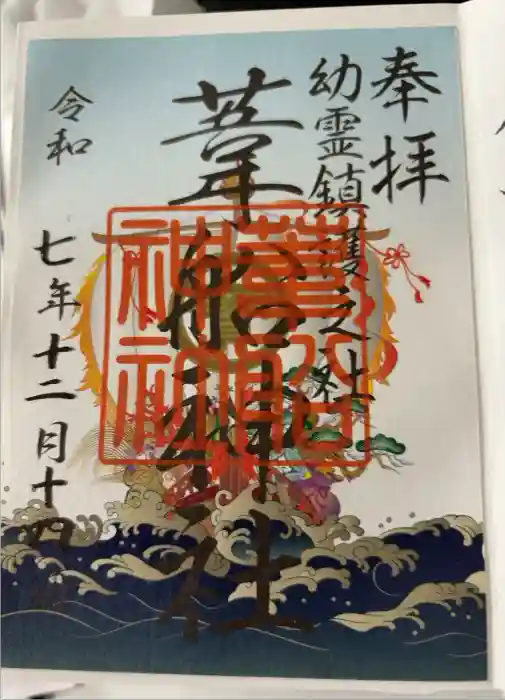 奉拝
幼霊鎮護之社
葦船神社
令和七年十二月十四
葦船
神社